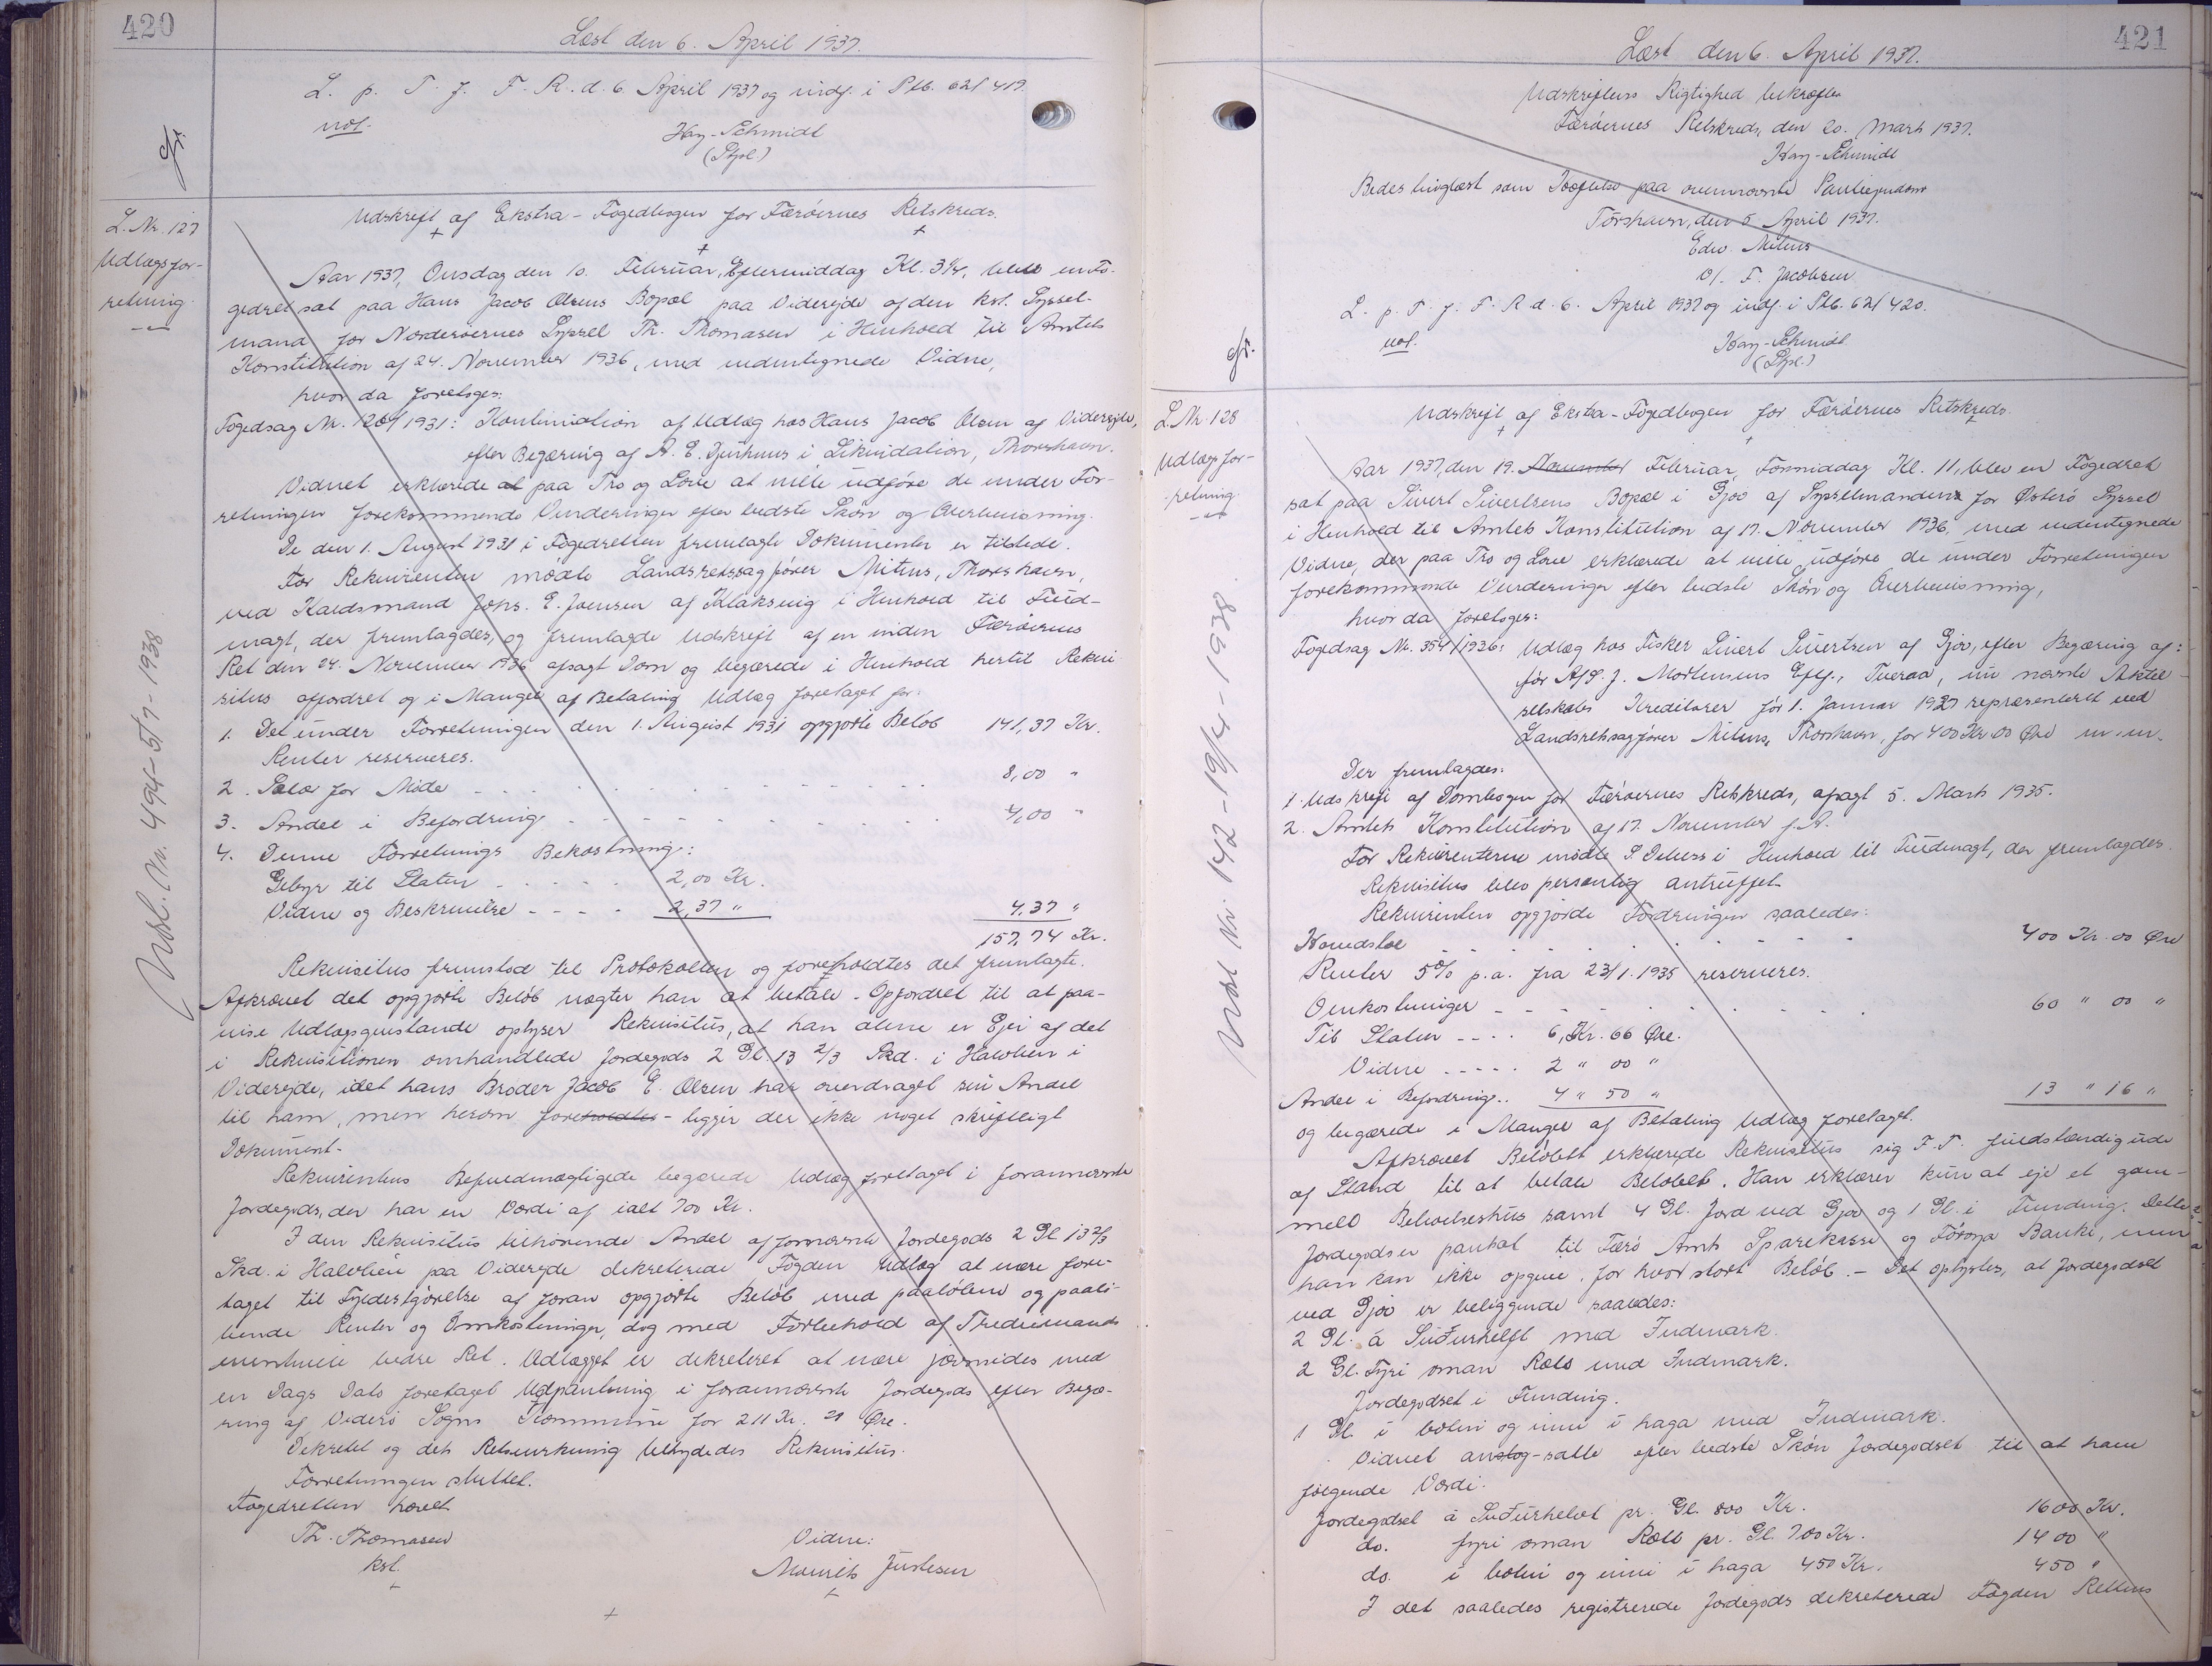 420
Læst den 6. April 1937.
L. p. T. f. F. R. d. 6. April 1937 og indf. i Ptb. 62/419.
Hay-Schmidt
(Stpl.)
L. Nr. 127
Udlægsfor-
retning.
Udslt. Nr. 494-5/7-1938
Udskrift af Ekstra-Fogedbogen for Færøernes Retskreds.
Aar 1937, Onsdag den 10. Februar, Eftermiddag Kl. 3 1/4, blev en Fo-
gedret sat paa Hans Jacob Olsens Bopæl paa Viderejde af den kst. Syssel-
mand for Norderøernes Syssel Th. Thomasen i Henhold til Amtets
Konstitution af 24. November 1936, med undertegnede Vidne,
hvor da foretoges:
Fogedsag Nr. 120/1931: Kontinuation af Udlæg hos Hans Jacob Olsen af Viderejde,
efter Begæring af A. E. Djurhuus i Likvidation, Thorshavn.
Vidnet erklærede at paa Tro og Love at ville udføre de under For-
retningen forekommende Vurderinger efter bedste Skøn og Overbevisning.
De den 1. August 1931 i Fogedretten fremlagte Dokumenter er tilstede.
For Rekvirenten mødte Landsretssagfører Mitens, Thorshavn,
ved Handsmand Johs. E. Joensen af Klaksvig i Henhold til Fuld-
magt, der fremlagdes, og fremlagde Udskrift af en inden Færøernes
Ret den 24. November 1936 afsagt Dom og begærede i Henhold hertil Rekvi-
situs affordret og i Mangel af Betaling Udlæg foretaget for:
1. Det under Forretningen den 1. August 1931 opgjorte Beløb 141,37 Kr.
Renter reserveres.
2. Salær for Møde - - - - 8,00 "
3. Andel i Befordring - - - - 4,00 "
4. Denne Forretnings Bekostning:
Gebyr til Staten - - - - 2,00 Kr.
Vidne og Beskrivelse - - - - 2,37 " 4,37 "
157,74 Kr.
Rekvisitus fremstod til Protokollen og foreholdtes det fremlagte.
Afkrævet det opgjorte Beløb nægter han at betale. Opfordret til at paa-
vise Udlægsgenstande oplyser Rekvisitus, at han alene er Ejer af det
i Rekvisitionen omhandlede Jordegods 2 Gl. 13 2/3 Skd. i Halvlien i
Viderejde, idet hans Broder Jacob E. Olsen har overdraget sin Andel
til ham, men herom foreholdtes - ligger der ikke noget skriftligt
Dokument.
Rekvirentens Befuldmægtigede begærede Udlæg foretaget i forannævnte
Jordegods, der har en Værdi af ialt 700 Kr.
I den Rekvisitus tilhørende Andel af fornævnte Jordegods 2 Gl 13 2/3
Skd. i Halvlien paa Viderejde dekreterede Fogden Udlæg at være fore-
taget til Fyldestgørelse af foran opgjorte Beløb med paaløbne og paalø-
bende Renter og Omkostninger, dog med Forbehold af Trediemands
eventuelle bedre Ret. Udlægget er dekreteret at være jævnsides med
en Dags Dato foretaget Udpantning i forannævnte Jordegods efter Begæ-
ring af Viderø Sogns Kommune for 211 Kr. 21 Øre.
Dekretet og dets Retsvirkning betydedes Rekvisitus.
Forretningen sluttet.
Fogedretten hævet
Th. Thomasen
kst.
Vidne:
Mourits Justesen
421
Læst den 6. April 1937.
Udskriftens Rigtighed bekræftes
Færøernes Retskreds, den 20. Marts 1937.
Hay-Schmidt
Bedes tinglæst som Hæftelse paa ovennævnte Panteejendom
Torshavn, den 5 April 1937.
Edw. Mitens
v/. F. Jacobsen
L. p. T. f. F. R d. 6. April 1937 og indf. i Ptb. 62/420.
Hay-Schmidt
(Stpl.)
L. Nr. 128
Udlægsfor-
retning.
Udslt Nr. 142-19/4-1938
Udskrift af Ekstra-Fogedbogen for Færøernes Retskreds.
Aar 1937, den 19. November Februar, Formiddag Kl. 11, blev en Fogedret
sat paa Sivert Sivertsens Bopæl i Gjov af Sysselmanden for Østerø Syssel
i Henhold til Amtets Konstitution af 17. November 1936, med undertegnede
Vidne, der paa Tro og Love erklærede at ville udføre de under Forretningen
forekommende Vurderinger efter bedste Skøn og Overbevisning,
hvor da foretoges:
Fogedsag Nr. 354/1926: Udlæg hos Fisker Sivert Sivertsen af Gjov, efter Begæring af:
før A/S. J. Mortensens Eftf., Tveraa, nu nævnte Aktie-
selskabs Kreditorer før 1. Januar 1927 repræsenteret ved
Landsretssagfører Mitens, Thorshavn, for 400 Kr. 00 Øre m. m.
Der fremlagdes:
1. Udskrift af Dombogen for Færøernes Retskreds, afsagt 5. Marts 1935.
2. Amtets Konstitution af 17. November f. A.
For Rekvirenterne mødte S Debess i Henhold til Fuldmagt, der fremlagdes.
Rekvisitus blev personlig antruffet.
Rekvirenten opgjorde Fordringen saaledes:
Hovedstol - - - - 400 Kr. 00 Øre
Renter 5% p. a. fra 23/1. 1935 reserveres.
Omkostninger - - - - 60 " 00 "
Til Staten - - - - 6, Kr. 66 Øre.
Vidne - - - - - 2 " 00 "
Andel i Befordring.. 4 " 50 " 13 " 16 "
og begærede i Mangel af Betaling Udlæg foretaget.
Afkrævet Beløbet erklærede Rekvisitus sig F. T. fuldstændig ude
af Stand til at betale Beløbet. Han erklærer kun at eje et gam-
melt Beboelseshus samt 4 Gl. Jord ved Gjov og 1 Gl. i Funding. Dette
Jordegods er pantsat til Færø Amts Sparekasse og Føroya Banki, men
han kan ikke opgive for hvor stort Beløb. - Det oplystes, at Jordegodset
ved Gjov er beliggende saaledes:
2 Gl. á Suðurhelft med Indmark.
2 Gl. Fyri oman Rætt med Indmark.
Jordegodset i Funding.
1 Gl. i botni og inni í haga med Indmark.
Vidnet anslog-satte efter bedste Skøn Jordegodset til at have
følgende Værdi.
Jordegodset á Suðurhelvt pr. Gl. 800 Kr. 1600 Kr.
do. fyri oman Rætt pr. Gl. 700 Kr. 1400 "
do. i botni og inni í haga 450 Kr. 450 "
I det saaledes registrerede Jordegods dekreterede Fogden Rettens